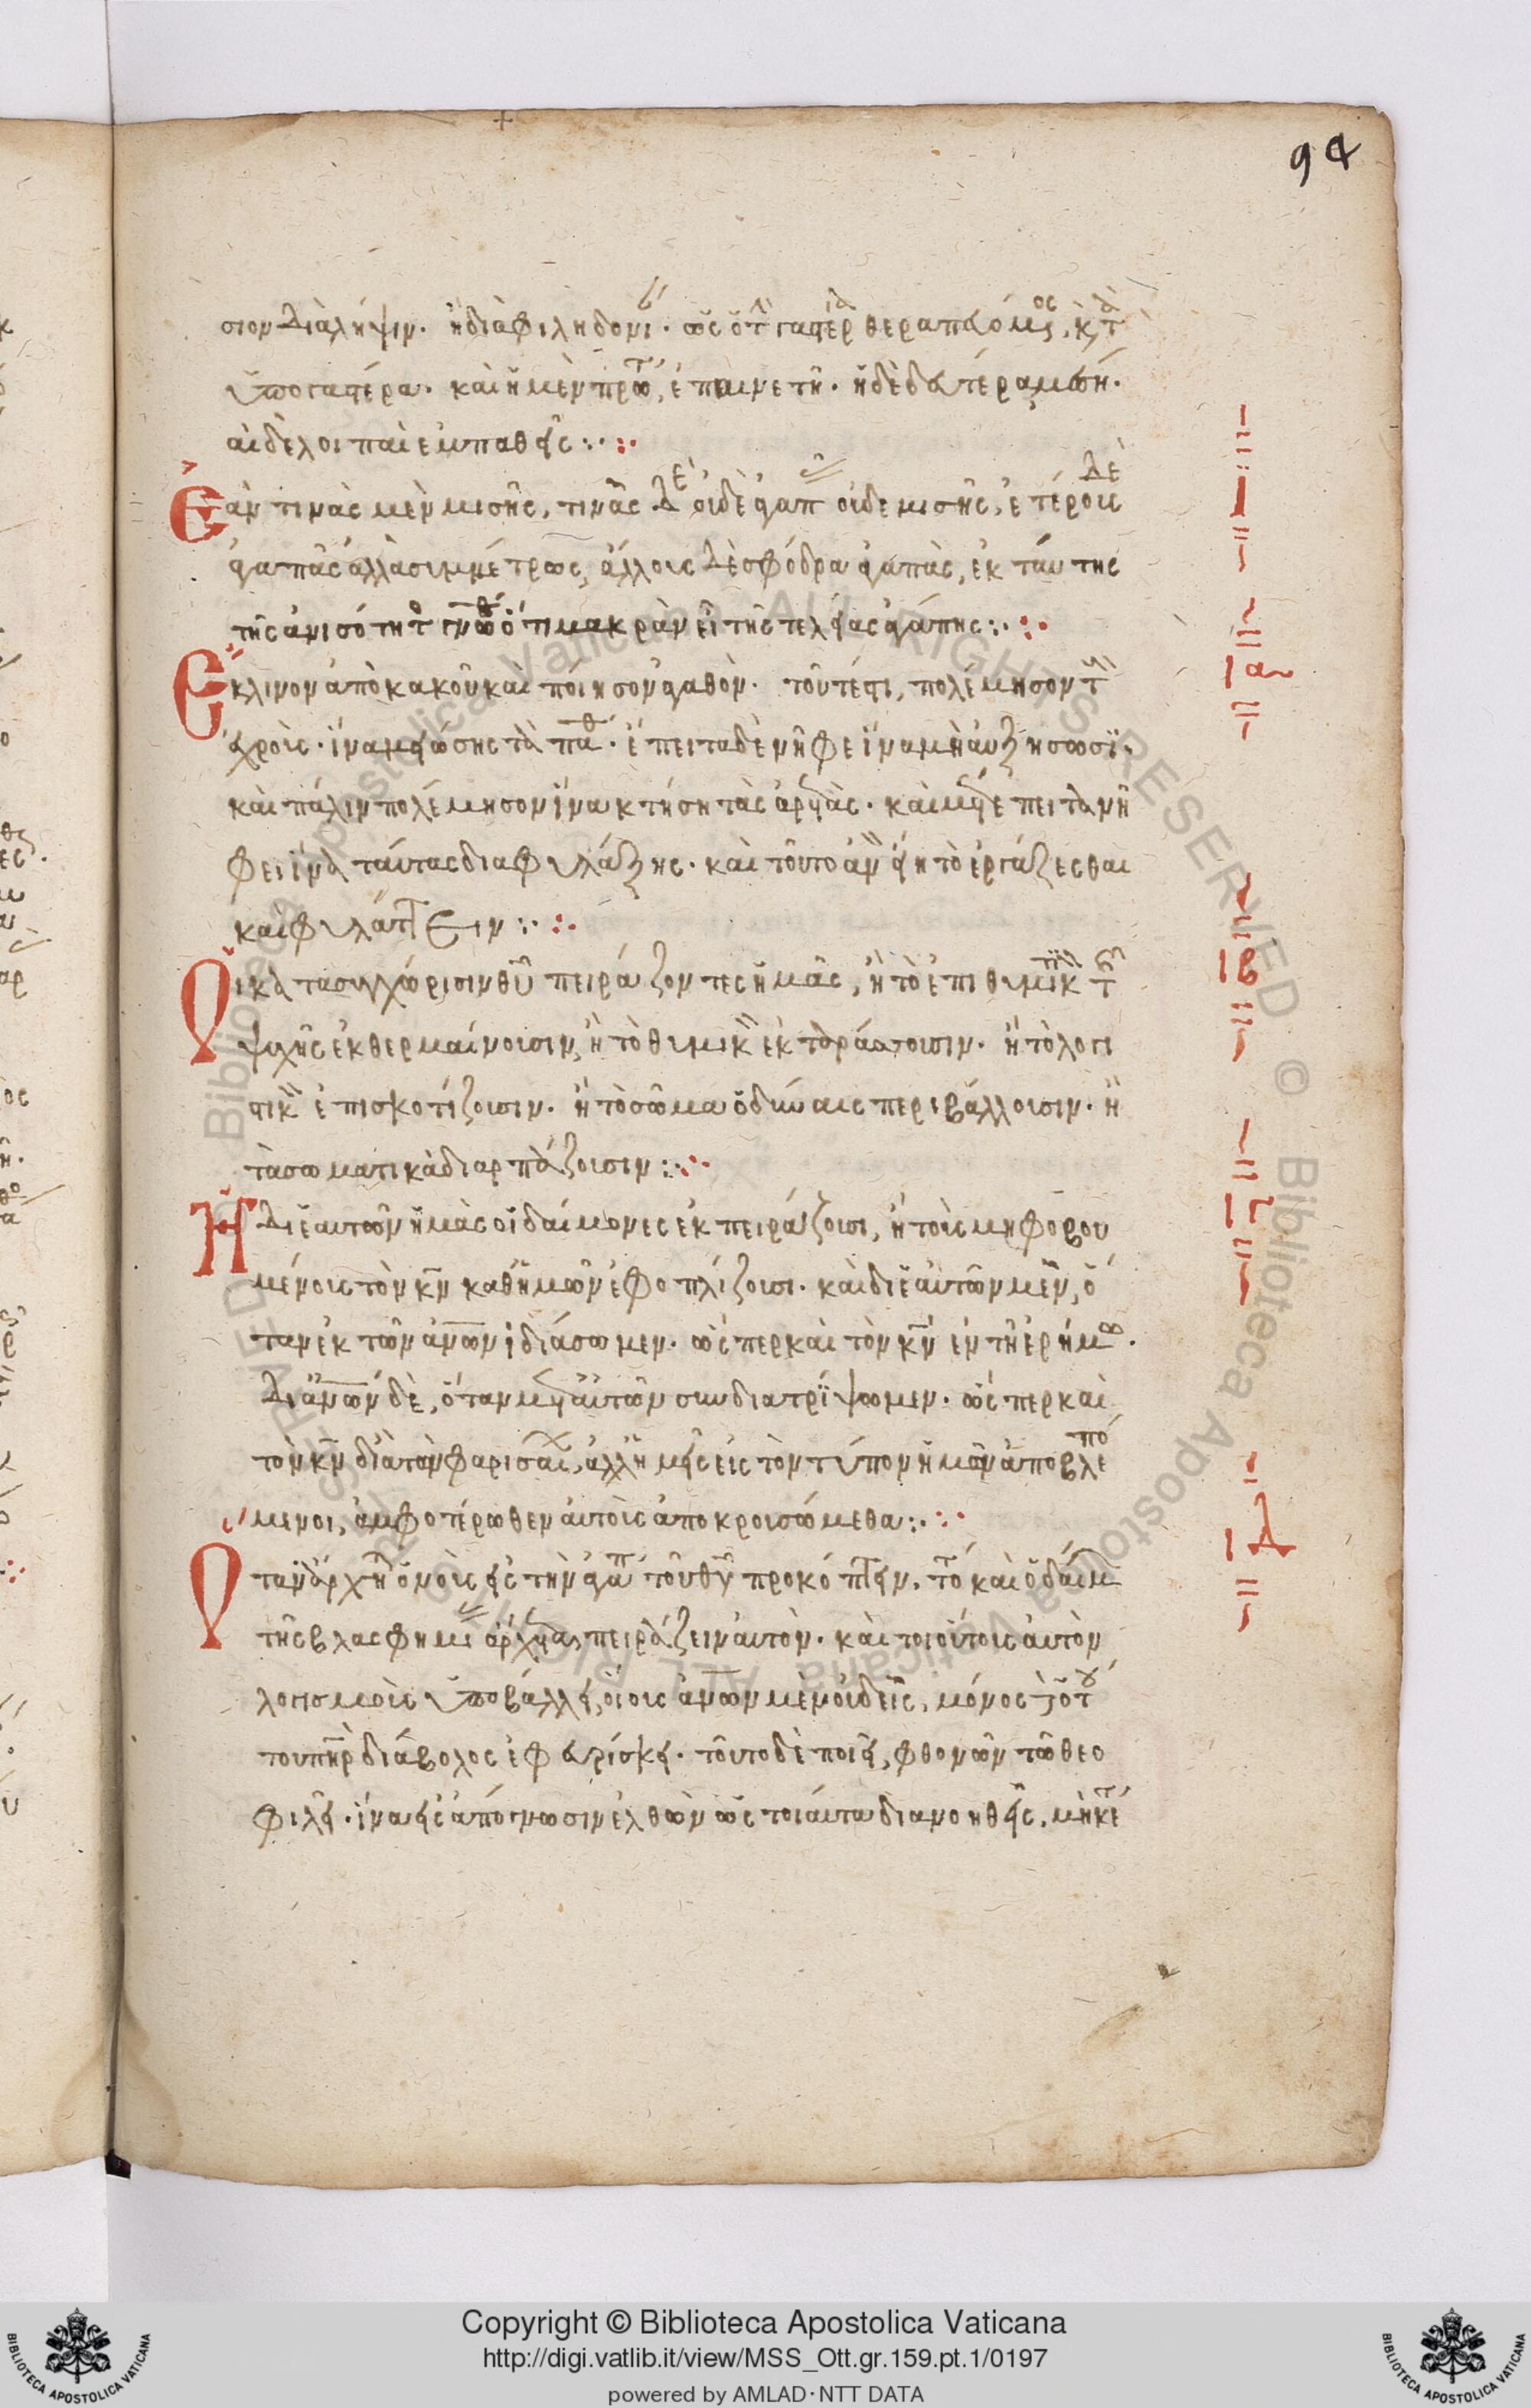 94
σιον διάληψιν. ἢ διὰ φιληδονί. ὡς ὅτ γαστέρ θεραπευόμος, κτ
ὑπο γαστέρα. καὶ ἡ μὲν πρώτ, ἐπαινετή. ἡ δὲ δευτέρα, μέση.
αἱ δὲ λοιπαὶ ἐμπαθεῖς
Ἐὰν τινὰς μὲν μισῇς, τινὰς δὲ οὐδὲ ἀγαπᾷς οὐδὲ μισῇς, ἑτέροις δὲ
ἀγαπᾷς ἀλλὰ συμμέτρως, ἄλλοις δὲ σφόδρα ἀγαπᾷς, ἐκ ταύτης
τῆς ἀνισότητο γνῶθ ὅτι μακρὰν εἶ τῆς τελείας ἀγάπης
Ἔκκλινον ἀπὸ κακοῦ καὶ ποίησον ἀγαθόν. τουτέστι, πολέμησον τ
ἐχθροῖς. ἵνα μειώσῃς τὰ πάθ. ἔπειτα δὲ νῆφε ἵνα μὴ αὐξήσωσι.
καὶ πάλιν πολέμησον ἵνα κτήσῃ τὰς ἀρετάς. καὶ μετέπειτα νῆ
φε ἵνα ταύτας διαφυλάξῃς. καὶ τοῦτο ἂν εἴη τὸ ἐργάζεσθαι
καὶ φυλάττειν
Οἱ κατὰ συγχώρισιν θυ πειράζοντες ἡμᾶς, ἢ τὸ ἐπιθυμητικ τ
ψυχῆς ἐκθερμαίνουσιν, ἢ τὸ θυμικ ἐκταράττουσιν. ἢ τὸ λογι
στικ ἐπισκοτίζουσιν. ἢ τὸ σῶμα ὀδύναις περιβάλλουσιν. ἢ
τὰ σωματικὰ διαρπάζουσιν
Ἢ δι ἑαυτῶν ἡμᾶς οἱ δαίμονες ἐκπειράζουσι, ἢ τοὺς μὴ φοβου
μένους τὸν κν καθ ἡμῶν ἐφοπλίζουσι. καὶ δι ἑαυτῶν μὲν, ὅ
ταν ἐκ τῶν ανων ἰδιάσωμεν. ὥσπερ καὶ τὸν κν ἐν τῇ ἐρήμω.
Δι ανων δὲ, ὅταν μετ αὐτῶν συνδιατρίψωμεν. ὥσπερ καὶ
τὸν κν διὰ τῶν φαρισαίων ἀλλ ἡμεῖς εἰς τὸν τύπον ἡμῶν ἀποβλεπό
μενοι, ἀμφοτέρωθεν αὐτοὺς ἀποκρουσώμεθα
Ὅταν ἄρχητ ὁ νοῦς εἰς τὴν ἀγάπ τοῦ θυ προκόπτειν, τότ καὶ ὁ δαίμ
τῆς βλασφημί ἄρχεται πειράζειν αὐτόν. καὶ τοιούτους αὐτῶν
λογισμοὺς ὑποβάλλει, οἵους ανων μὲν οὐδεὶς, μόνος δὲ ὁ τού
του πηρ διάβολος ἐφευρίσκει. τοῦτο δὲ ποιεῖ, φθονῶν τῷ θεο
φιλεῖ. ἵνα εἰς ἀπόγνωσιν ἐλθὼν ὡς τοιαῦτα διανοηθεὶς, μηκέτ
Copyright © Biblioteca Apostolica Vaticana
http://digi.vatlib.it/view/MSS_Ott.gr.159.pt.1/0197
powered by AMLAD·NTT DATA